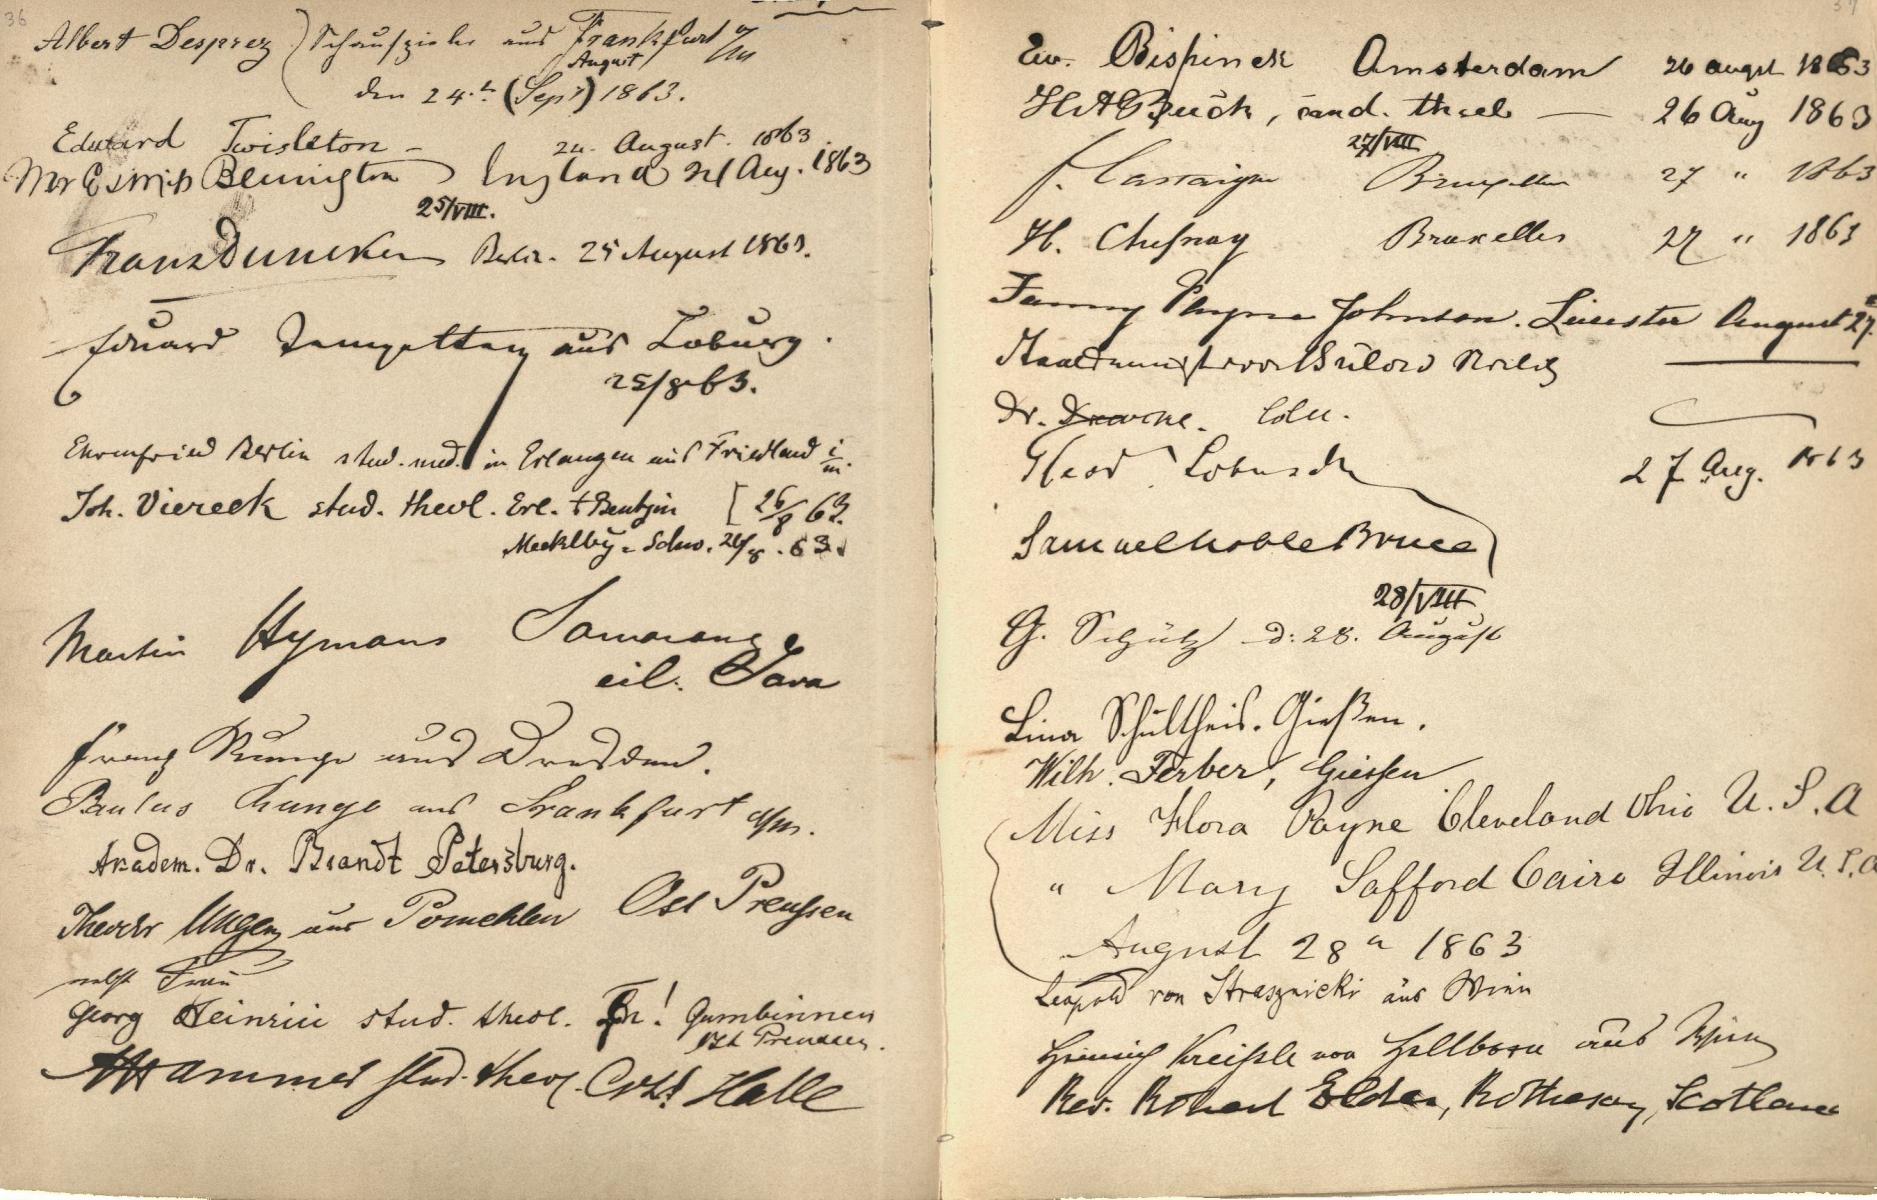 36
Albert Desprez Schauspieler aus Frankfurt a/M
August
den 24. (Sept) 1863.
Edward Twisleton 24. August. 1863
Bennington England 24 Aug. 1863
25/VIII.
Franz Duncker Berlin. 25 August 1863.
Eduard aus Coburg.
25/8 63.
Ehrenfried Berlin stud. med. in Erlangen aus Friedland i/m.
Joh. Viereck stud. theol. Erl. 26/8 63.
Mecklbg. Schw. 26/8. 63.
Martin Hymans Samarang
eil. Java
Franz Runge aus Dresden.
Paulus Runge aus Frankfurt a/m.
Akadem. Dr. Brandt Petersburg.
Theodor aus Pomehlen Ost Preußen
nebst Frau
Georg Heinrici stud. theol. Gumbinnen
Ost Preussen.
Hammer stud. theol. Halle
37
Ew. Bispinck Amsterdam 26 augst 1863
H A Bruck, cand. theol 26 Aug 1863
27/VIII
27 " 1863
H. Chesnay Bruxelles 27 " 1863
Fanny Payne Johnson. Leicester August 27.
Bülow
Dr. Coeln.
Theod. 27 Aug. 1863
Samuel Noble Bruce
28/VIII
G. Schütz d: 28. August
Lina Schultheis. Gießen.
Wilh. Ferber, Giessen
Miss Flora Payne Cleveland Ohio U. S. A
" Mary Safford Cairo Illinois U. S. A
August 28 1863
Leopold von Strasznicki aus Wien
Heinrich Kreißle von Hellborn aus Wien
Rev. Robert Elder, Rothesay, Scotland